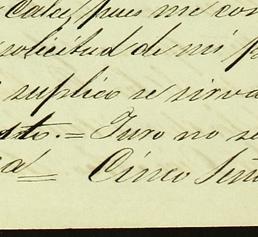 Calet, pues me con
solicitud de mi p
suplico se sirva
sto.= Juro no se
a= Cinco